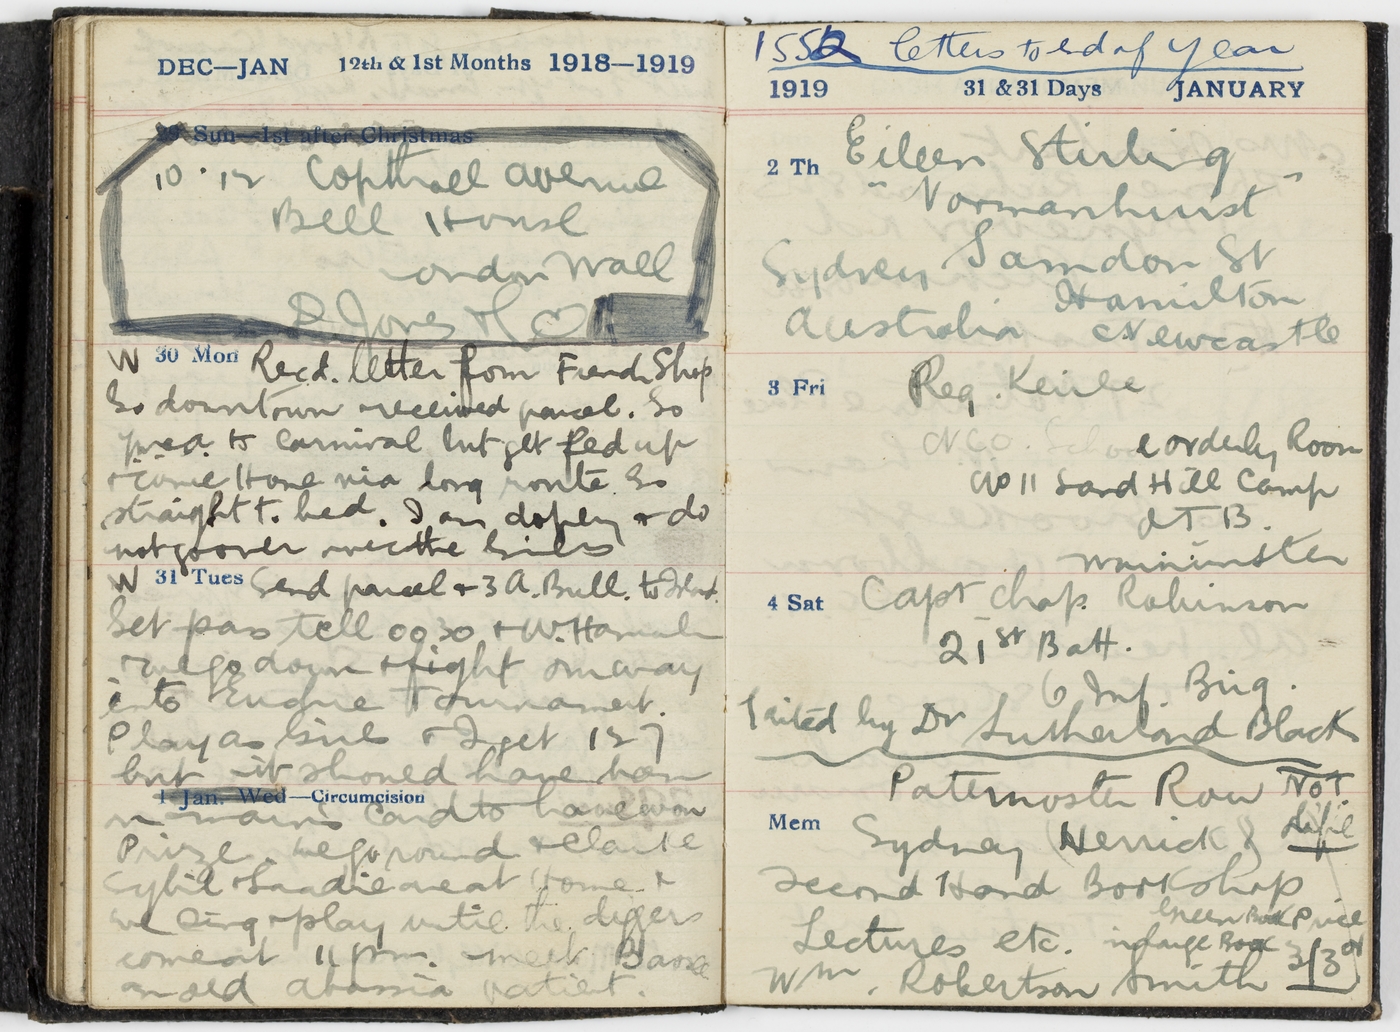 DEC—JAN 12th & 1st Months 1918—1919
29 Sun—1st after Christmas
10.12 Copthall avenue
Bell House
London Wall
D Jones
W 30 Mon Recd. letter from Friends Shop
So downtown & received parcel. So
to Carnival but get fed up
& come Home via long route So
straight t. bed. I am dopey & do
not go over the Girls
W 31 Tues Send parcel & 3 A. Bull. to
Get pass tell 0030 & W.
& we go down & fight on way
into Euchre Tournament.
Play as Girls & I get 127
but it should have been
1 Jan. Wed—Circumcision
mans Card to have won
Prize. We go round &
Sybil & Saadie are at Home &
we sing & play until the diggers
come at 11 pm. meet
an old abassia patient.
1552 letters to ed of year
1919 31 & 31 Days JANUARY
2 Th Eileen Stirling
"Normanhurst"
Sydney Samdon St
Hamilton
Australia Newcastle
3 Fri Reg.
NCO. School orderly Room
No 11 Sand Hill Camp
TB.
4 Sat Capt Chap. Robinson
21st Batt.
6 Inf. Brig.
by Dr Sutherland Black
Paternoster Row Not
Mem Sydney (Herrick) Life
Second Hand Book Shop
Green Book Price
Lectures etc. in large Book 3/3
Wm. Robertson Smith